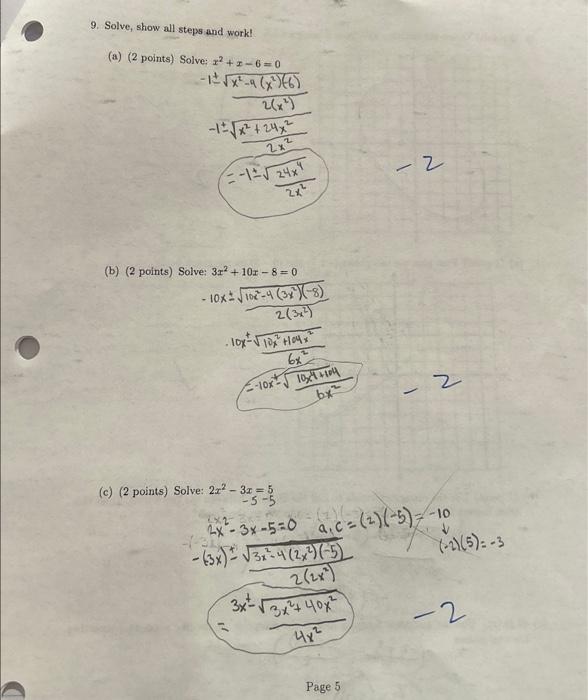 9. Solve, show all steps and work!
(a) (2 points) Solve: x² + x − 6 = 0
-1 ± √x²-4(x²)(-6)
2(x²)
-1 ± √x²+24x²
2x²
= -1 ± √24x⁴
2x²
-2
(b) (2 points) Solve: 3x² + 10x − 8 = 0
-10x ± √10x²-4(3x²)(-8)
2(3x²)
-10x ± √10x²+104x²
6x²
= -10x ± √10x⁴+104
6x²
-2
(c) (2 points) Solve: 2x² − 3x = 5
-5 -5
2x²-3x-5=0 a.c = (2)(-5) = -10
(-2)(5)=-3
-(-3x) ± √3x²-4(2x²)(-5)
2(2x²)
= 3x ± √3x²+40x²
4x²
-2
Page 5